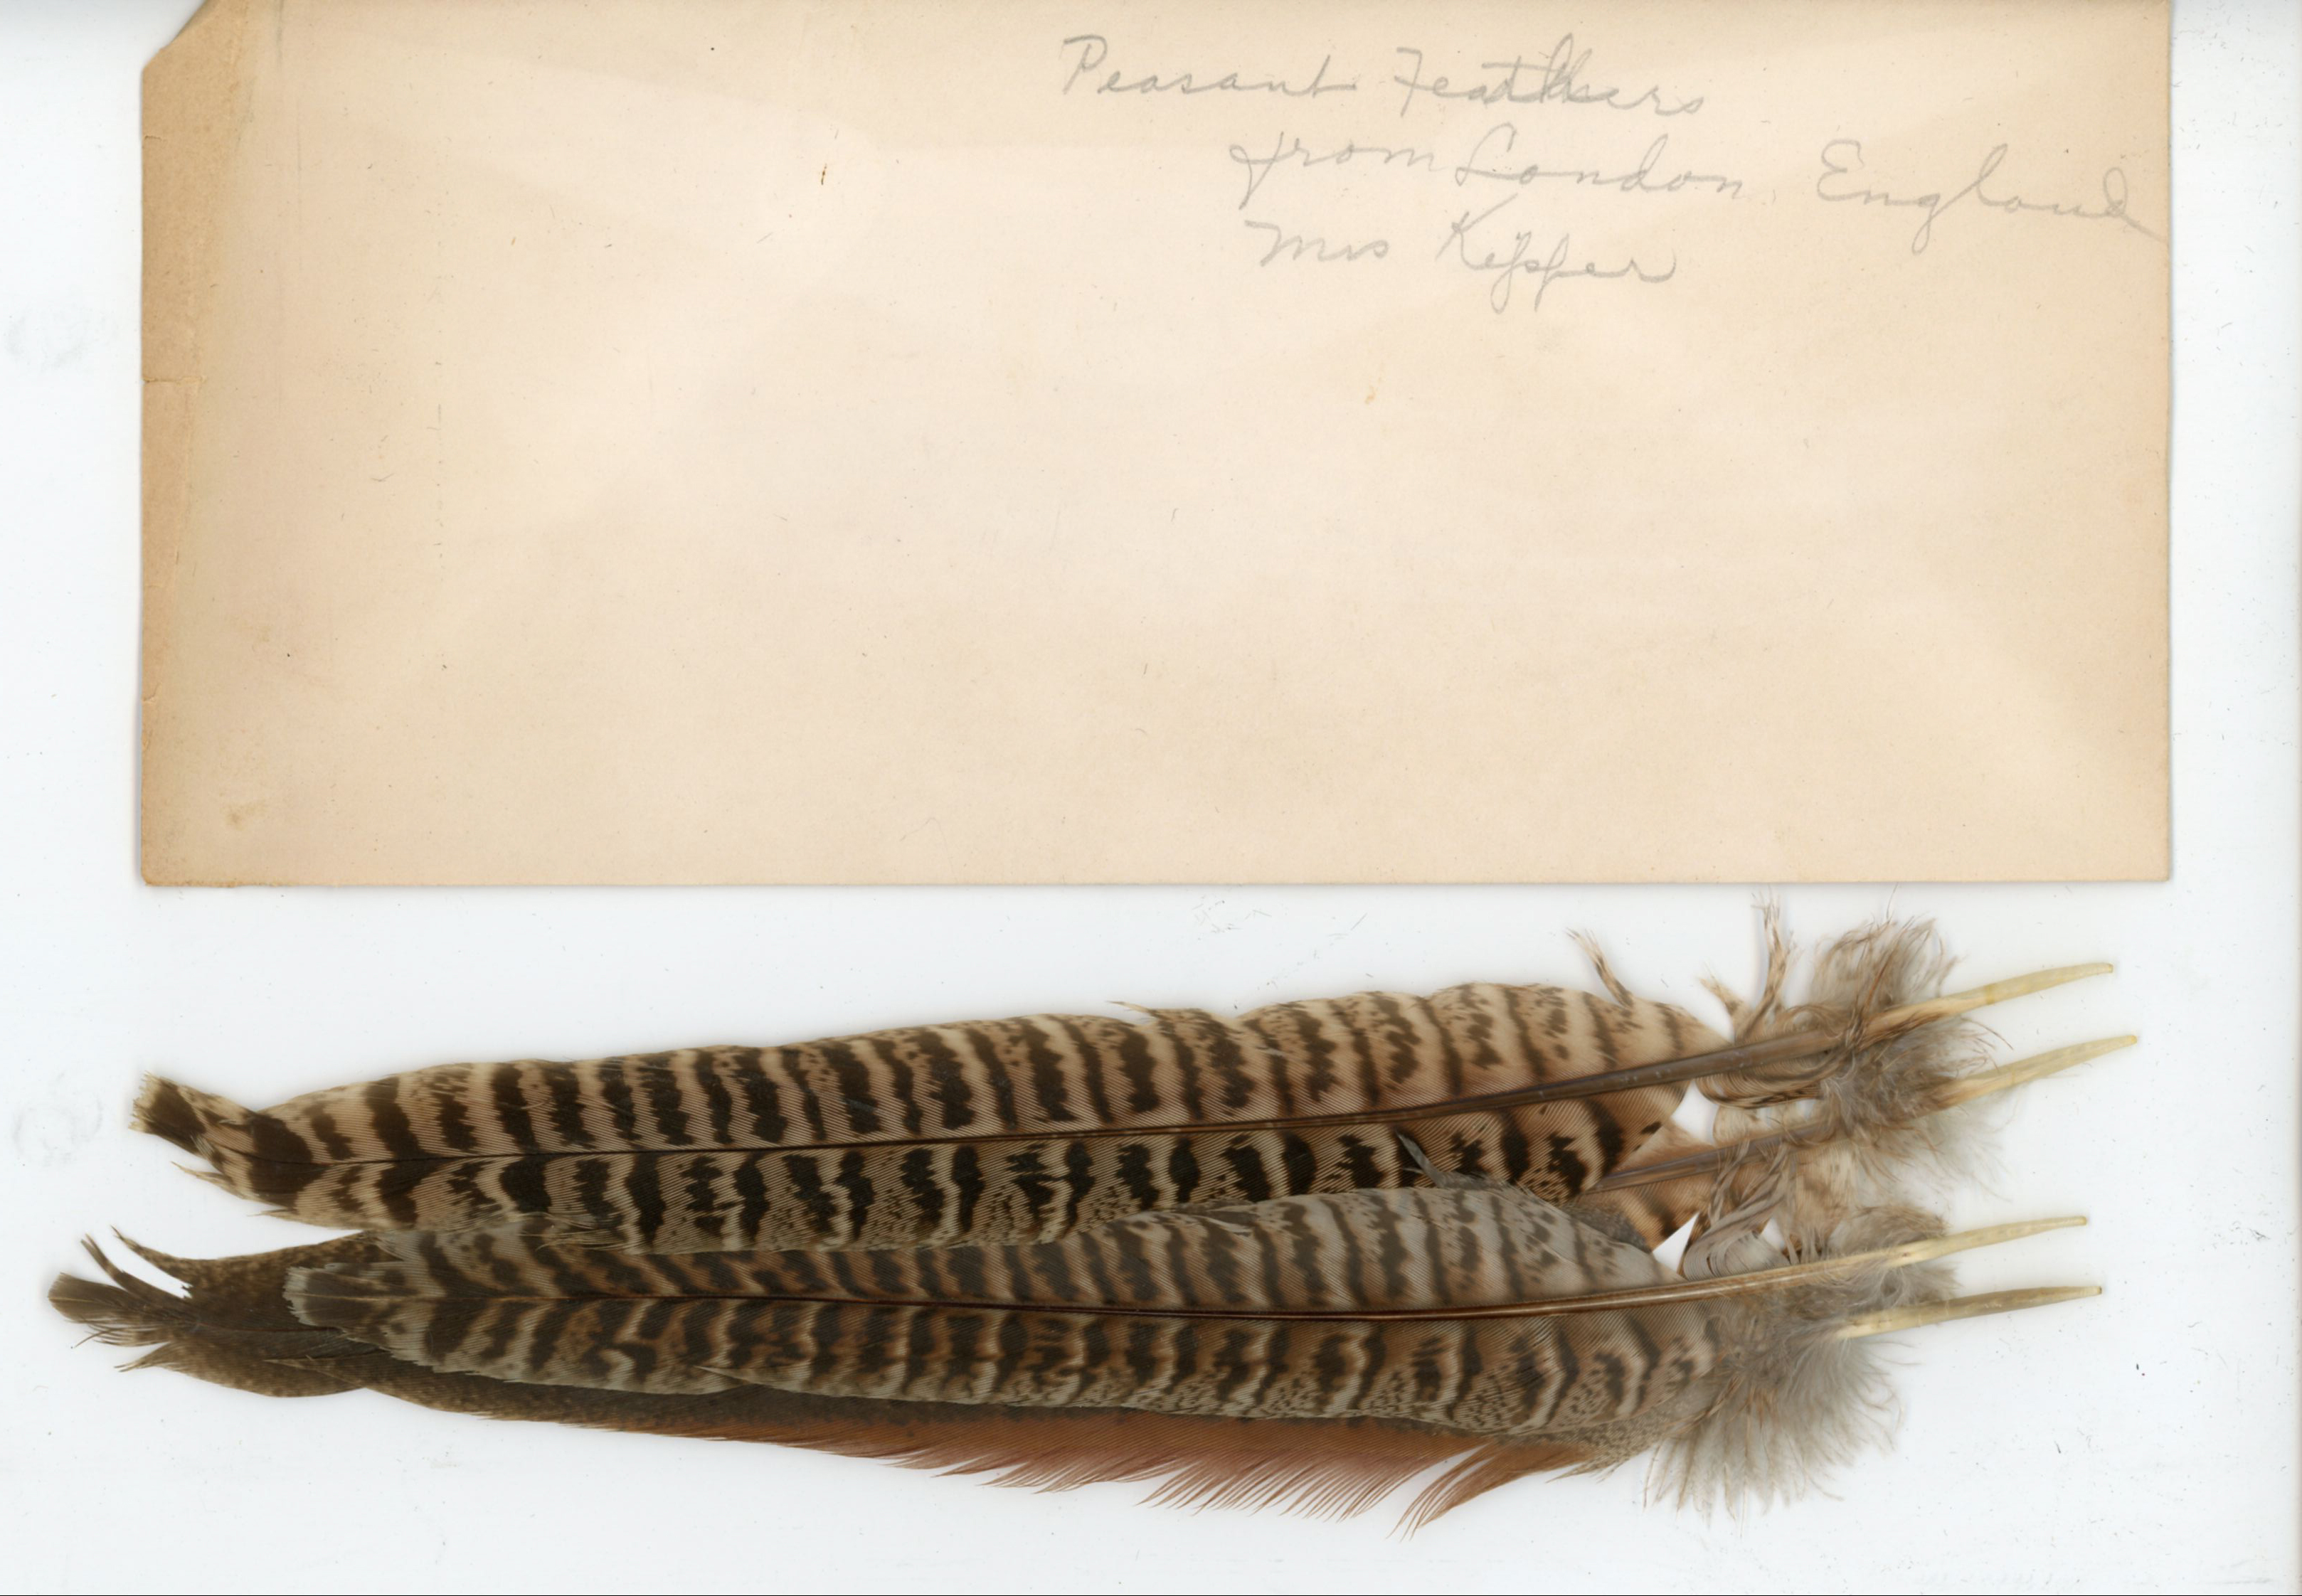 Peasant Feathers
from London England
Mrs